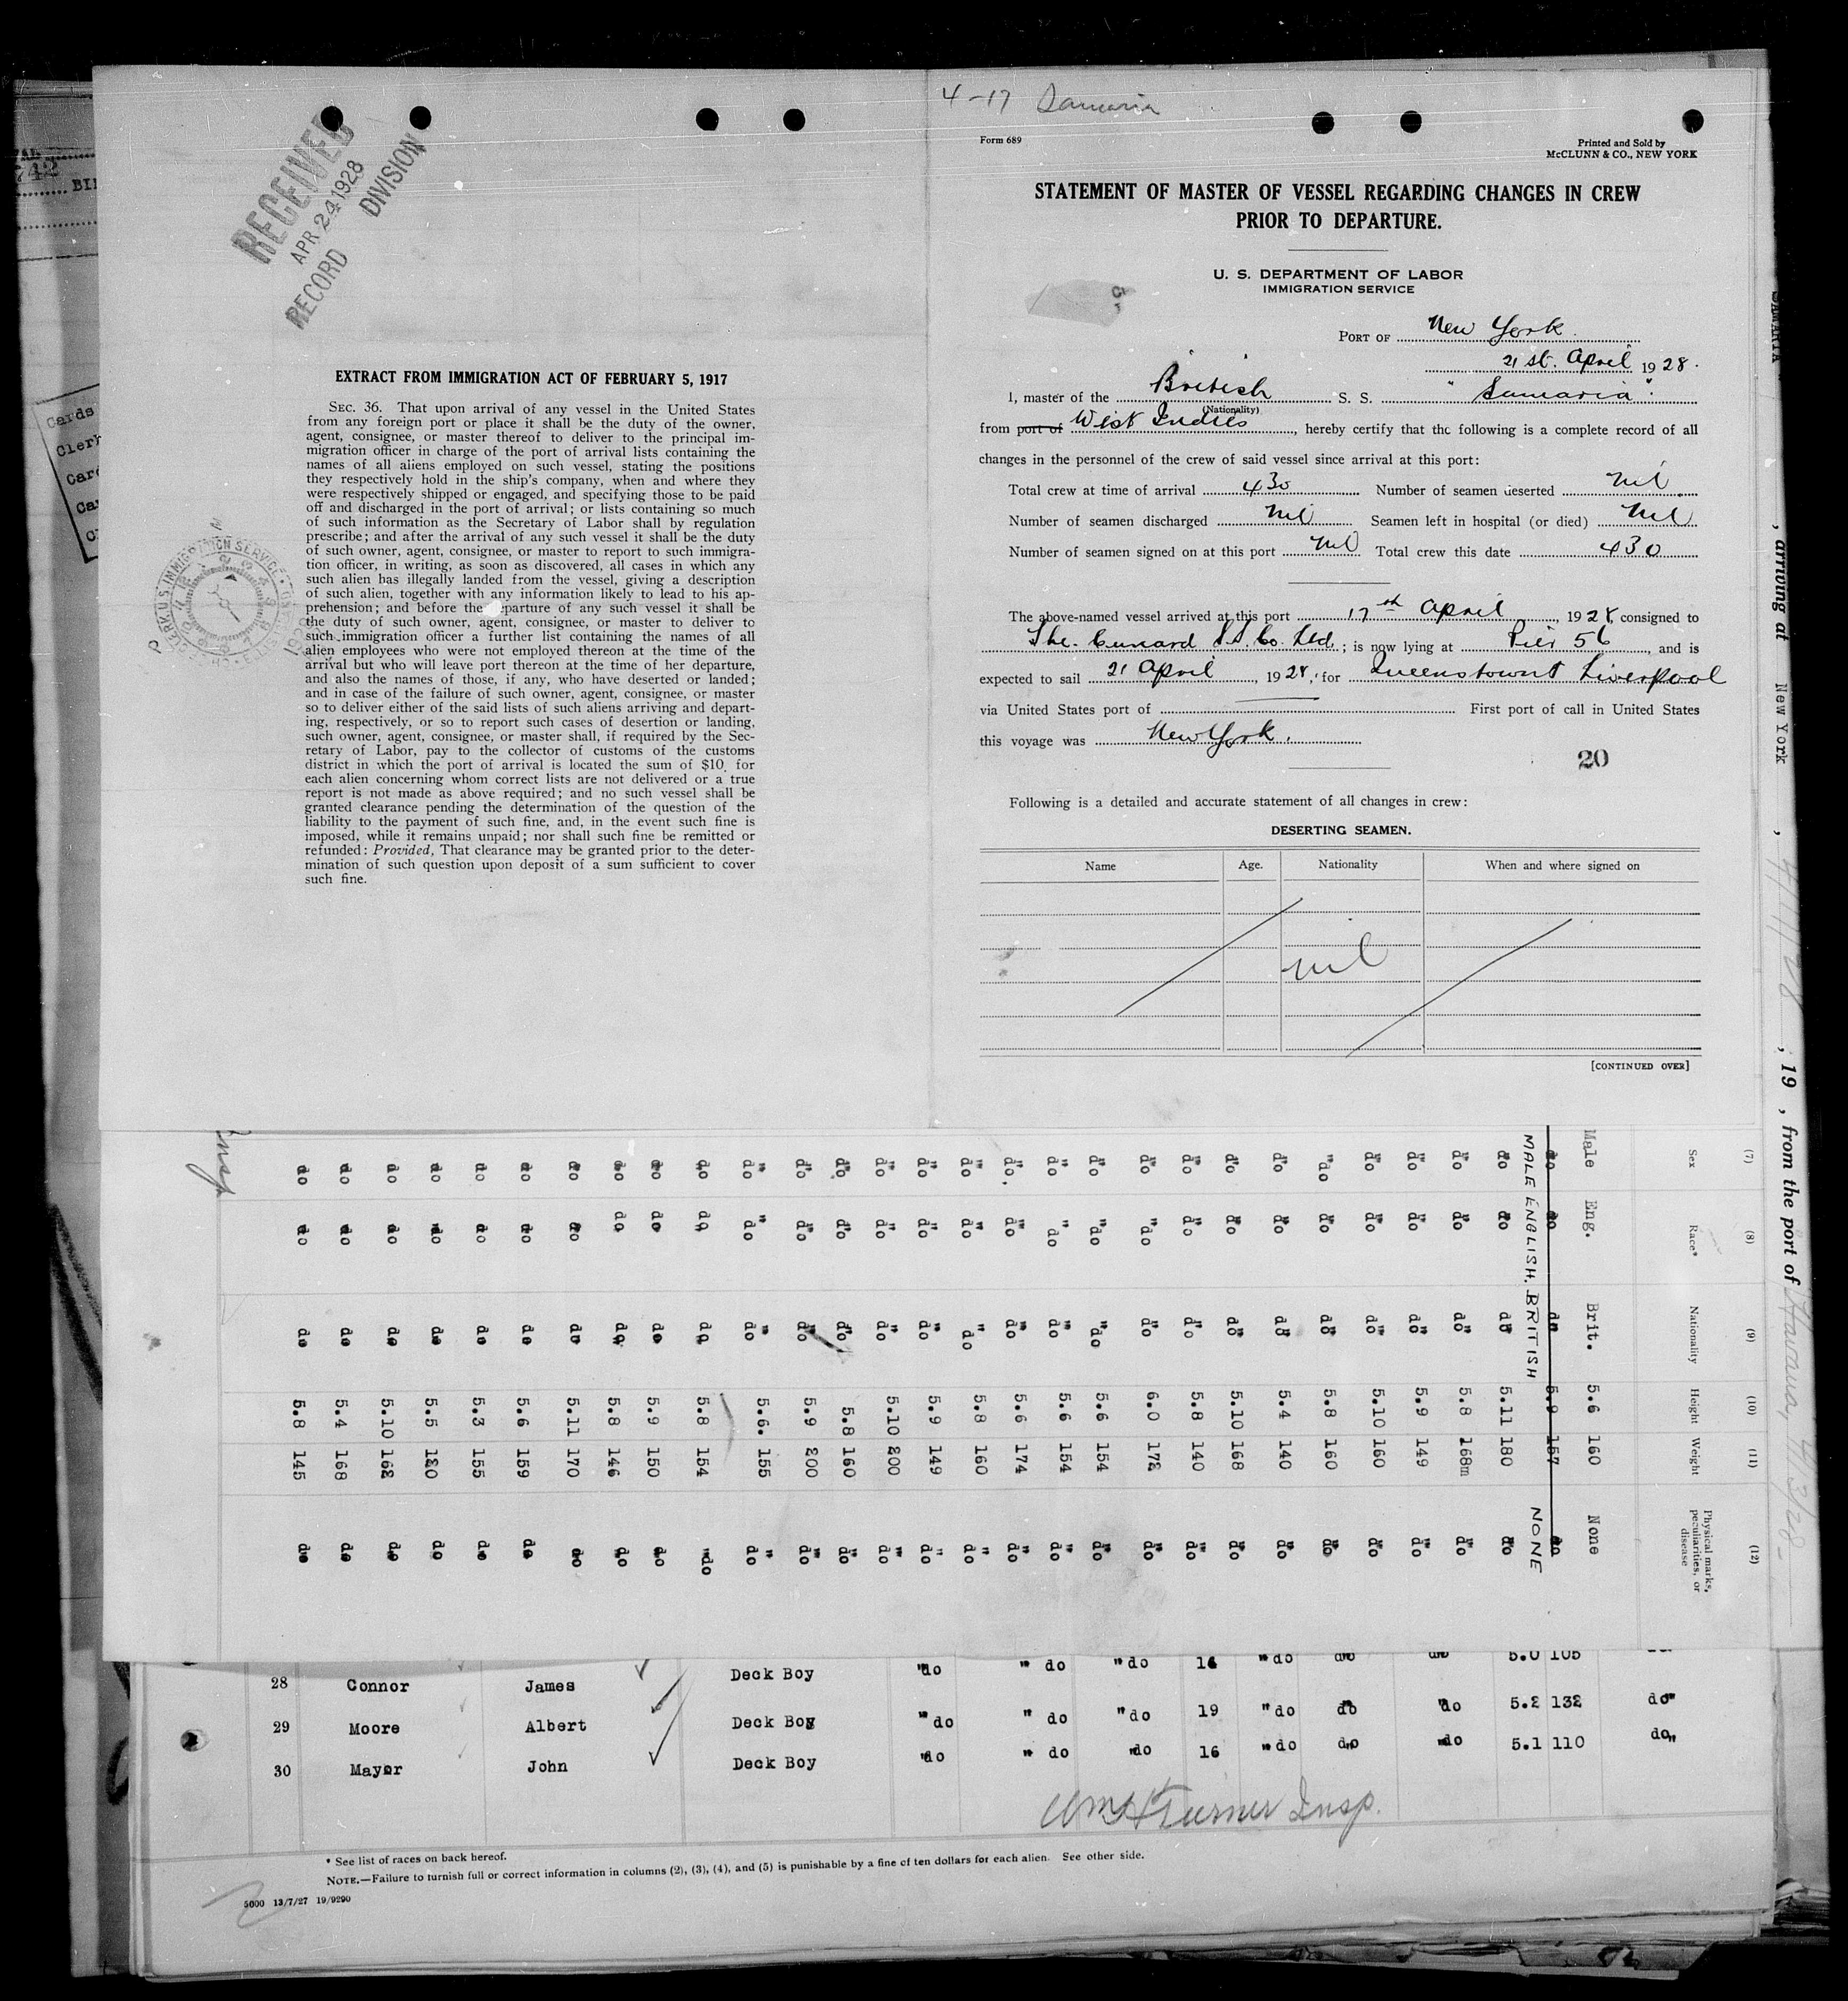 RECEIVED
APR 24 1928
RECORD DIVISION
EXTRACT FROM IMMIGRATION ACT OF FEBRUARY 5, 1917
SEC. 36. That upon arrival of any vessel in the United States
from any foreign port or place it shall be the duty of the owner,
agent, consignee, or master thereof to deliver to the principal im-
migration officer in charge of the port of arrival lists containing the
names of all aliens employed on such vessel, stating the positions
they respectively hold in the ship's company, when and where they
were respectively shipped or engaged, and specifying those to be paid
off and discharged in the port of arrival; or lists containing so much
of such information as the Secretary of Labor shall by regulation
prescribe; and after the arrival of any such vessel it shall be the duty
of such owner, agent, consignee, or master to report to such immigra-
tion officer, in writing, as soon as discovered, all cases in which any
such alien has illegally landed from the vessel, giving a description
of such alien, together with any information likely to lead to his ap-
prehension; and before the eparture of any such vessel it shall be
the duty of such owner, agent, consignee, or master to deliver to
such immigration officer a further list containing the names of all
alien employees who were not employed thereon at the time of the
arrival but who will leave port thereon at the time of her departure,
and also the names of those, if any, who have deserted or landed;
and in case of the failure of such owner, agent, consignee, or master
so to deliver either of the said lists of such aliens arriving and depart-
ing, respectively, or so to report such cases of desertion or landing,
such owner, agent, consignee, or master shall, if required by the Sec-
retary of Labor, pay to the collector of customs of the customs
district in which the port of arrival is located the sum of $10 for
each alien concerning whom correct lists are not delivered or a true
report is not made as above required; and no such vessel shall be
granted clearance pending the determination of the question of the
liability to the payment of such fine, and, in the event such fine is
imposed, while it remains unpaid; nor shall such fine be remitted or
refunded: Provided, That clearance may be granted prior to the deter-
mination of such question upon deposit of a sum sufficient to cover
such fine.
4-17 Samaria
Form 689
Printed and Sold by
McCLUNN & CO., NEW YORK
STATEMENT OF MASTER OF VESSEL REGARDING CHANGES IN CREW
PRIOR TO DEPARTURE.
U. S. DEPARTMENT OF LABOR
IMMIGRATION SERVICE
PORT OF New York
21 st. April 1928.
I, master of the British S. S. "Samaria".
(Nationality)
from port of West Indies, hereby certify that the following is a complete record of all
changes in the personnel of the crew of said vessel since arrival at this port:
Total crew at time of arrival 430 Number of seamen deserted nil
Number of seamen discharged nil Seamen left in hospital (or died) nil
Number of seamen signed on at this port nil Total crew this date 430
The above-named vessel arrived at this port 17th April, 1928, consigned to
The Cunard S.S. Co. Ltd.; is now lying at Pier 56, and is
expected to sail 21 April, 1928, for Queenstown & Liverpool
via United States port of First port of call in United States
this voyage was New York.
20
Following is a detailed and accurate statement of all changes in crew:
DESERTING SEAMEN.
Name Age. Nationality When and where signed on
nil
[CONTINUED OVER]
SAMARIA, arriving at New York, 4/17/28, 19 , from the port of Havana, 4/13/28
(7) (8) (9) (10) (11) (12)
Sex Race* Nationality Height Weight Physical marks, peculiarities, or disease
Male Eng. Brit. 5.6 160 None
do do do 5.9 157 do
MALE ENGLISH. BRITISH NONE
do do do 5.11 180 do
do do do 5.8 168m do
do do do 5.9 149 do
do do do 5.10 160 do
do do do 5.8 160 do
do do do 5.4 140 do
do do do 5.10 168 do
do do do 5.8 140 do
do do do 6.0 172 do
do do do 5.6 154 do
do do do 5.6 154 do
do do do 5.6 174 do
do do do 5.8 160 do
do do do 5.9 149 do
do do do 5.10 200 do
do do do 5.8 160 do
do do do 5.9 200 do
do do do 5.6. 155 do
do do do 5.8 154 do
do do do 5.9 150 do
do do do 5.8 146 do
do do do 5.11 170 do
do do do 5.6 159 do
do do do 5.3 155 do
do do do 5.5 120 do
do do do 5.10 162 do
do do do 5.4 168 do
do do do 5.8 145 do
Insp
28 Connor James Deck Boy "do " do "do 16 "do do do 5.0 105
29 Moore Albert Deck Boy "do " do "do 19 "do do "do 5.2 132 do"
30 Mayor John Deck Boy "do " do "do 16 "do do "do 5.1 110 do"
Wm H Turner Insp.
* See list of races on back hereof.
NOTE.—Failure to furnish full or correct information in columns (2), (3), (4), and (5) is punishable by a fine of ten dollars for each alien. See other side.
5000 13/7/27 19/9290